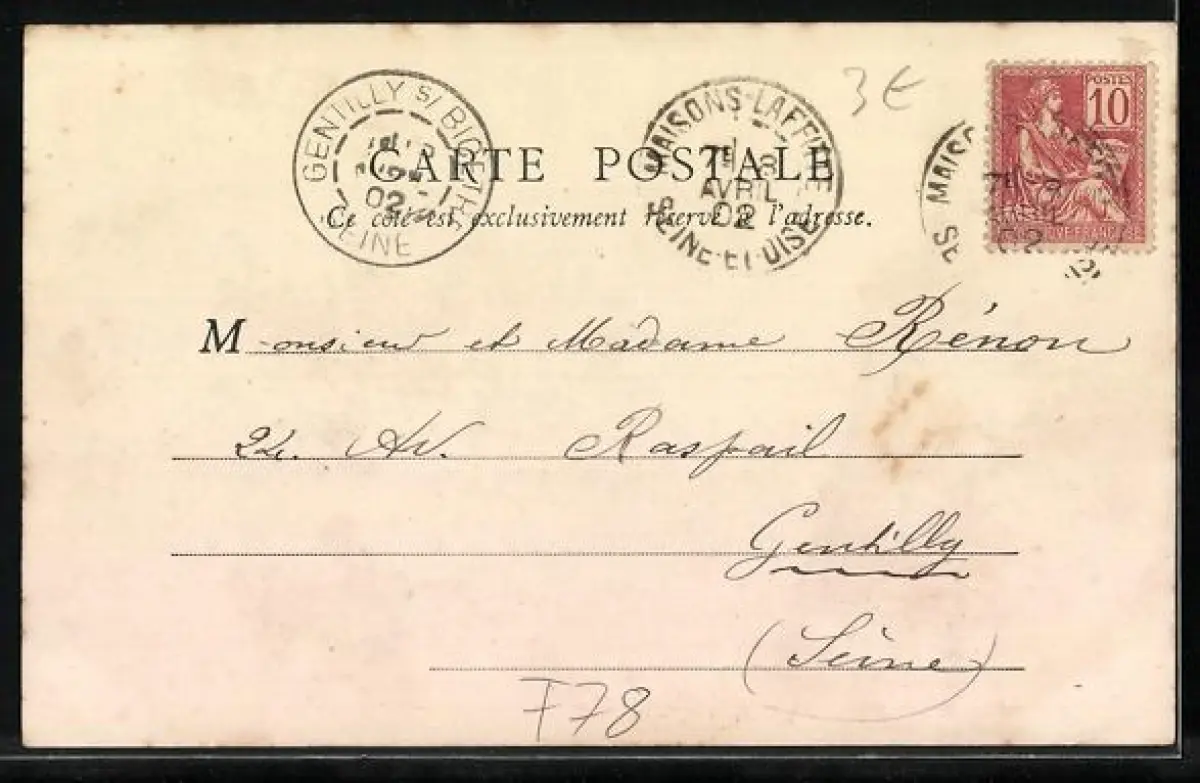 3€
POSTES
10
GENTILLY S/ BICETRE
02
SEINE
MAISONS-LAFFITTE
7E 8
AVRIL
02
SEINE-ET-OISE
MAISO
7E
02
CARTE POSTALE
Ce côté est exclusivement réservé à l'adresse.
Monsieur et Madame Rénon
24. Av. Raspail
Gentilly
(Seine)
F78